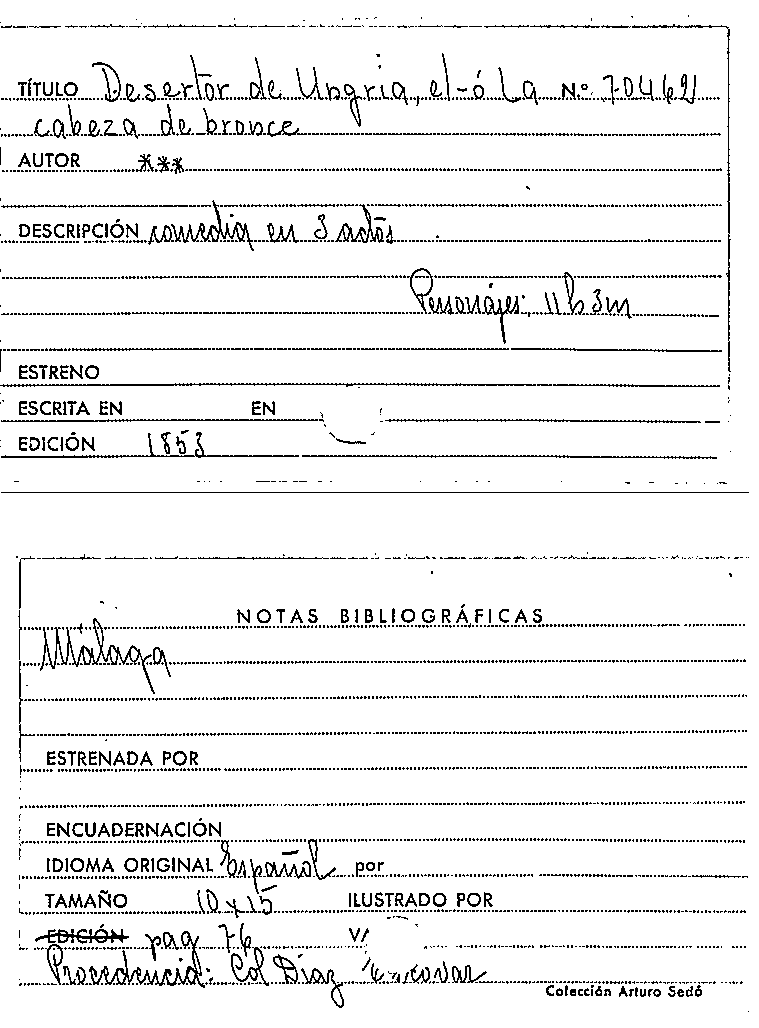 TÍTULO Desertor de Ungria, el-ó La Nº 70462
cabeza de bronce
AUTOR ***
DESCRIPCIÓN comedia en 3 actos
Personajes: 11 h 3 m
ESTRENO
ESCRITA EN EN
EDICIÓN 1853
NOTAS BIBLIOGRÁFICAS
Málaga
ESTRENADA POR
ENCUADERNACIÓN
IDIOMA ORIGINAL Español por
TAMAÑO 10 x 15 ILUSTRADO POR
EDICIÓN pag 76 V/
Procedencia: Col Díaz Escovar
Colección Arturo Sedó